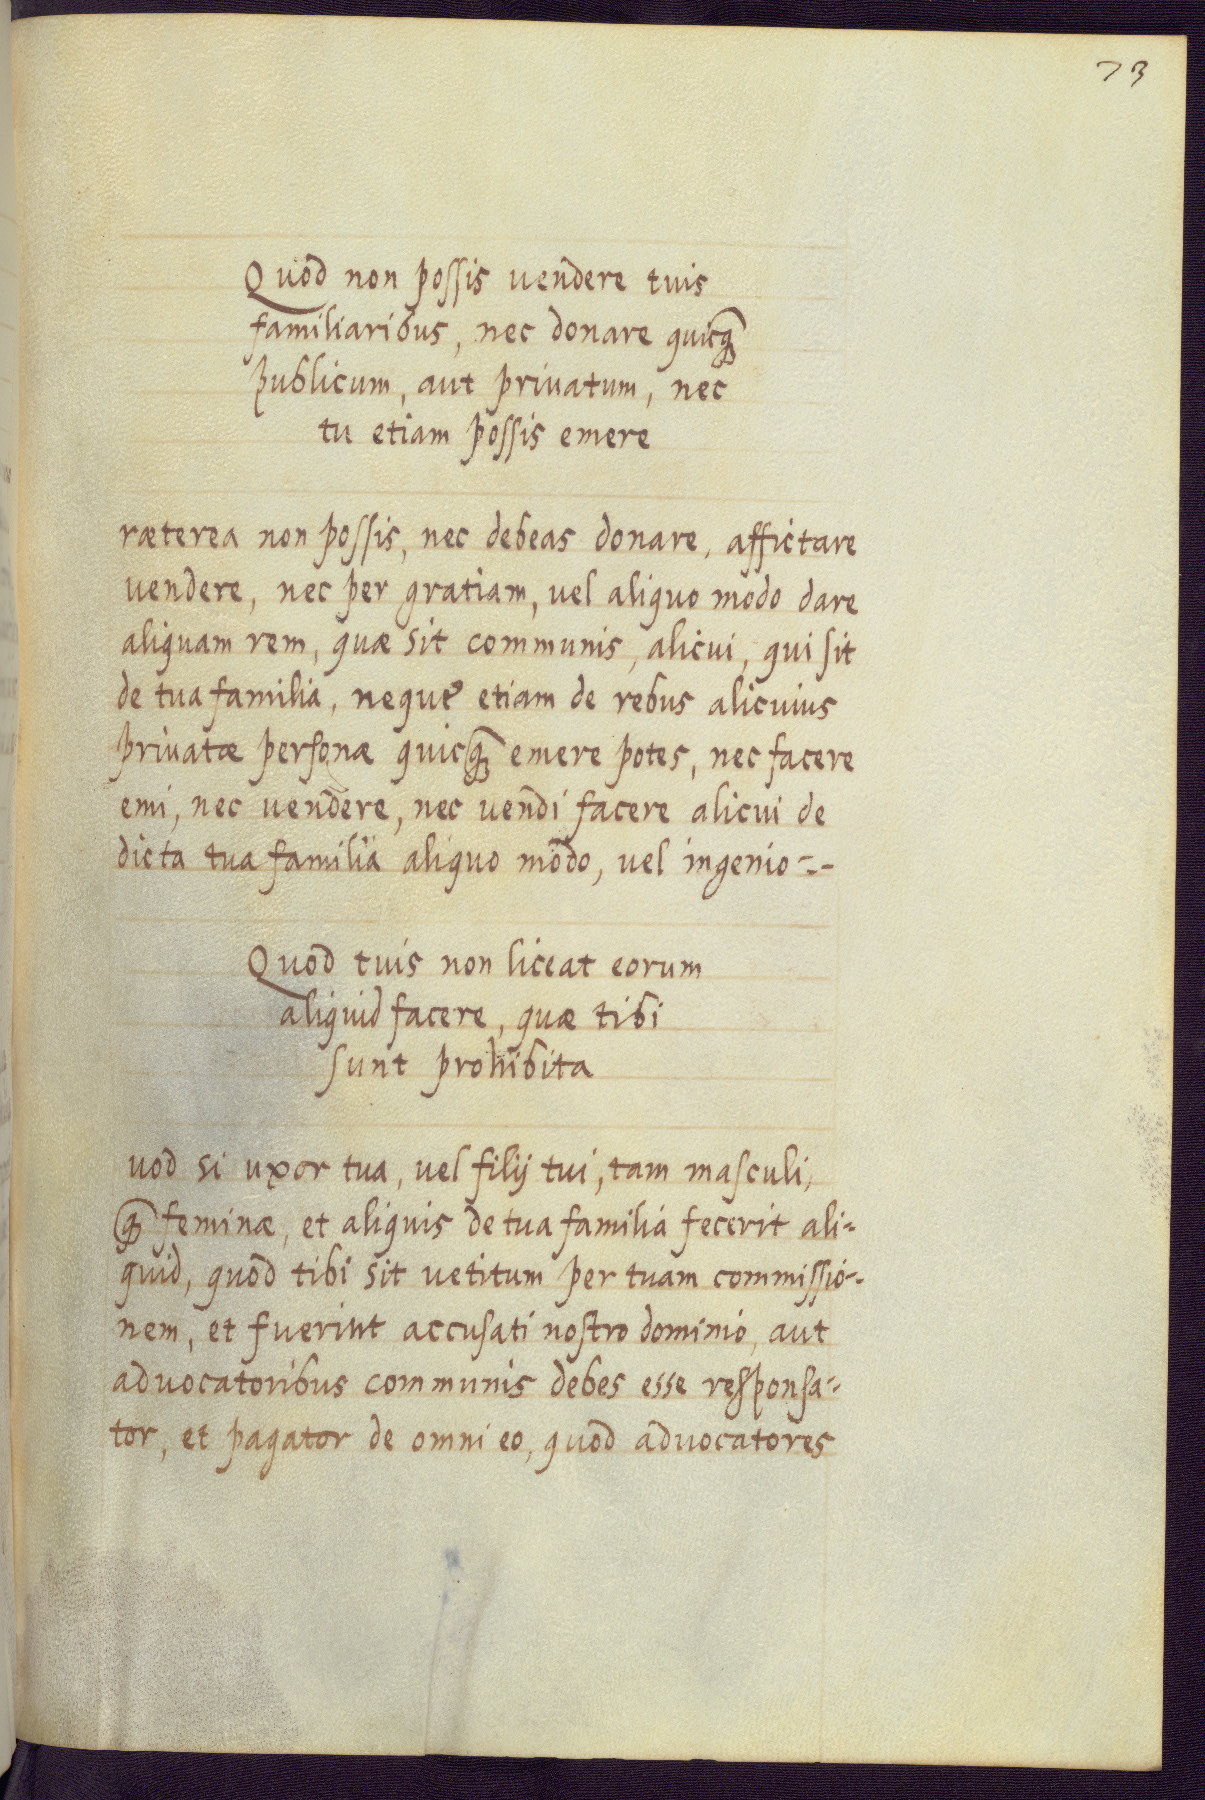 73
Quod non possis vendere tuis
familiaribus, nec donare quicq̃
publicum, aut privatum, nec
tu etiam possis emere
ræterea non possis, nec debeas donare, affictare
vendere, nec per gratiam, vel aliquo modo dare
aliquam rem, quæ sit communis, alicui, qui sit
de tua familia, neque etiam de rebus alicuius
privatæ personæ quicq̃ emere potes, nec facere
emi, nec vendere, nec vendi facere alicui de
dicta tua familia aliquo modo, vel ingenio=-
Quod tuis non liceat eorum
aliquid facere, quæ tibi
sunt prohibita
uod si uxor tua, vel filij tui, tam masculi,
q̃ feminæ, et aliquis de tua familia fecerit ali-
quid, quod tibi sit vetitum per tuam commissio-
nem, et fuerint accusati nostro dominio, aut
advocatoribus communis debes esse responsa-
tor, et pagator de omni eo, quod advocatores